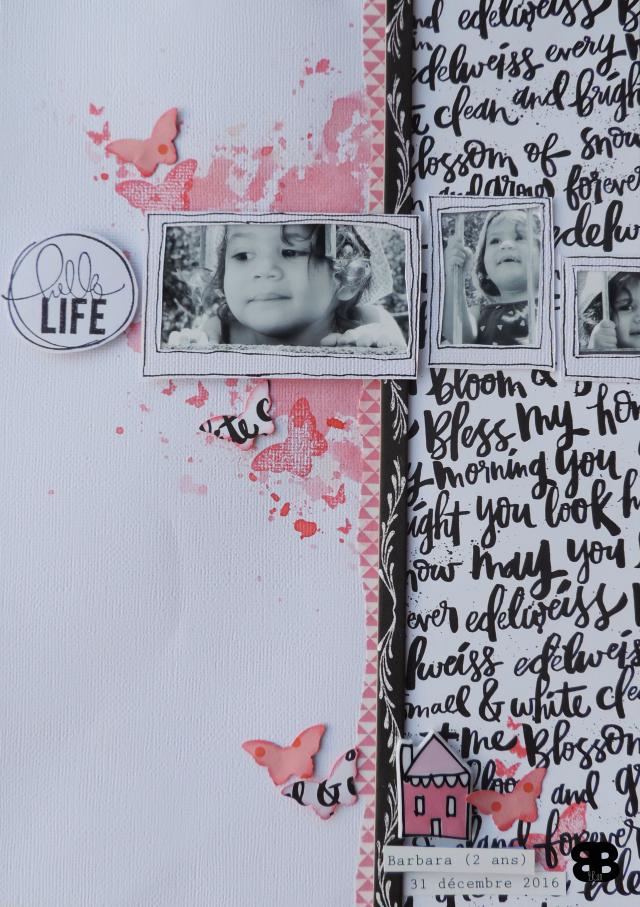 and edelweiss
edelweiss every
clean and brigh
blossom of snow
and grow forever
edelw
hello
LIFE
bloom a
Bless my ho
te c
morning you
ight you look h
now may you
ever edelweiss
lweiss edelweiss
mall & white cle
me Blosso
bloo and g
l & i
and forever
Barbara (2 ans)
31 décembre 2016